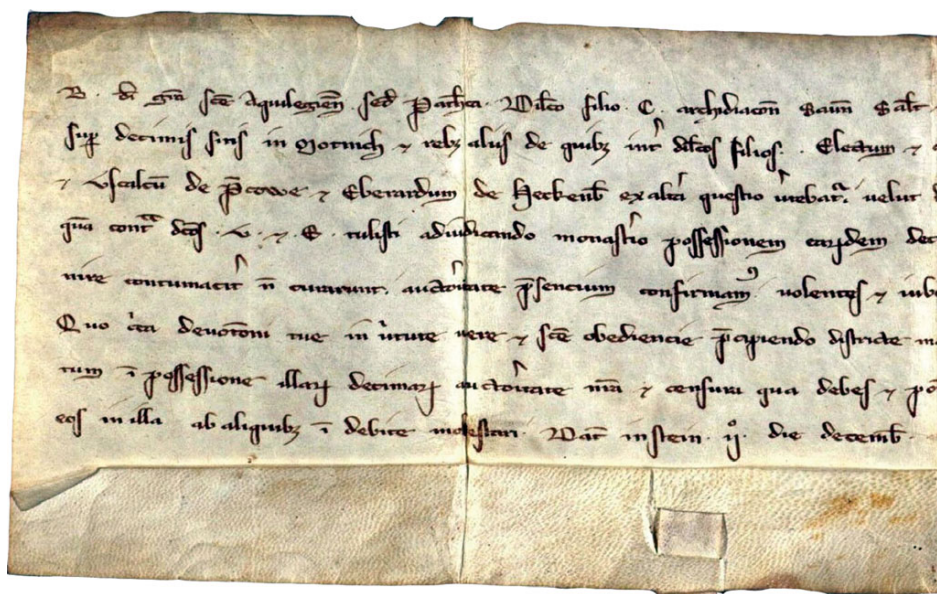 B. di gra sce Aquilegien. sed Patha. Dilco filio. C. archidiacon Saun Salt
sup decimis sitis in Motnich ⁊ rebȝ aliis de quibȝ int dilcos filios. Electum ⁊
⁊ Vscalcu de Pcowe ⁊ Eberardum de Heckenb ex altera questio vtebat, velut
qua contra dcos. V. ⁊. E. tulisti adiudicando monastio possessionem earumdem dec
nire contumacit n curarunt. auctoitate psencium confirmam9 volentes ⁊ iub
Quo cca devotoni tue in vtute vere ⁊ sce obediencie pcipiendo districte
tum i possessione illarꝝ decimarꝝ auctoitate nra ⁊ censura qua debes ⁊
eos in illa ab aliquibȝ i debite molestari. Dat in stein. ij. die decemb.